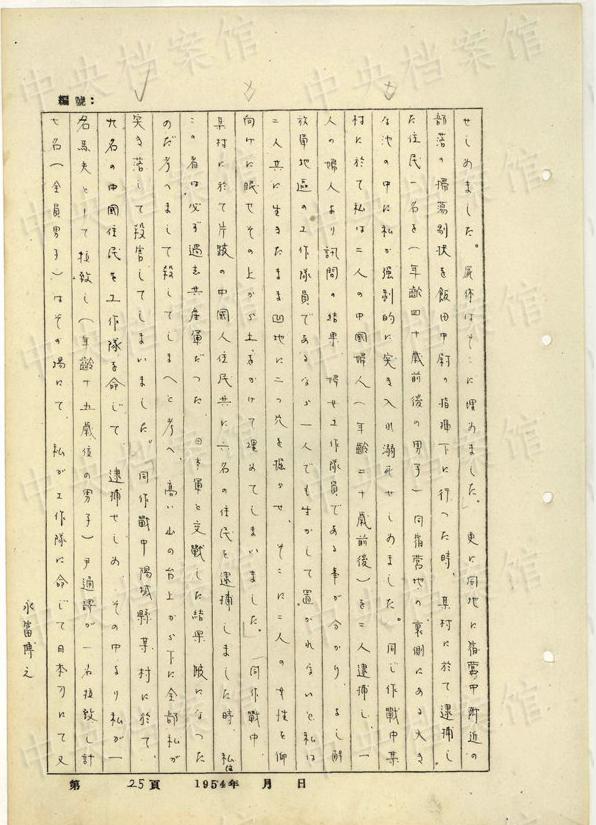 編號：
せしめました。屍体はそこに埋めました」 更に同地に宿営中附近の
部落の掃蕩剔抉を飯田中尉の指揮下に行った時、某村に於て逮捕し
た住民一名を（年齢四十歳前後の男子）同宿営地の裏側にある大き
な池の中に私が強制的に突き入れ溺死せしめました。同じ作戰中某
村に於て私は二人の中國婦人（年齢二十歳前後）を二人逮捕し、一
人の婦人より訊問の結果、婦女工作隊員である事が分かり、よし解
放軍地區の工作隊員であるなら一人でも生かして置かれないと私は
二人共に生きたまま凹地に二つ穴を掘かせ、そこに二人の女性を仰
向けに眠せその上から土をかけて埋めてしまいました」「同作戰中
某村に於て片跛の中國人住民共に六名の住民を逮捕しました時、私は
この者は必ず過去共産軍だつた、日本軍と交戰した結果跛になつた
のだ考へまして殺してしまへと考へ、高い山の台上から下に全部私が
突き落して殺害してしまいました。「同作戰中陽城縣某村に於て、
九名の中國住民を工作隊を命じて、逮捕せしめ その中より私が一
名馬夫として拉致し（年齢十五歳位の男子）尹通譯が一名拉致し計
七名（全員男子）はその場にて、私が工作隊に命じて日本刀にて又
永富博之
第 25頁 1954年 月 日
中央档案馆